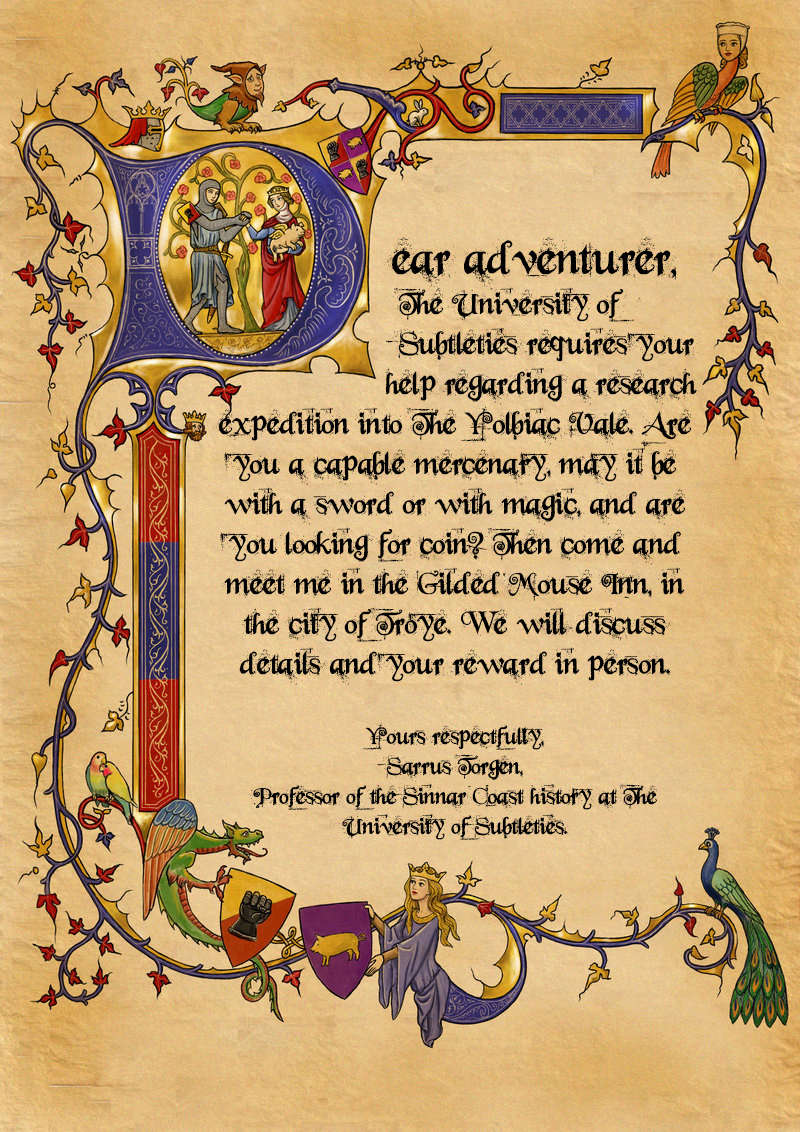 Dear adventurer,
The University of
Subtleties requires your
help regarding a research
expedition into The Yolbiac Vale. Are
you a capable mercenary, may it be
with a sword or with magic, and are
you looking for coin? Then come and
meet me in the Gilded Mouse Inn, in
the city of Troye. We will discuss
details and your reward in person.
Yours respectfully,
Sarrus Torgen,
Professor of the Sinnar Coast history at The
University of Subtleties.